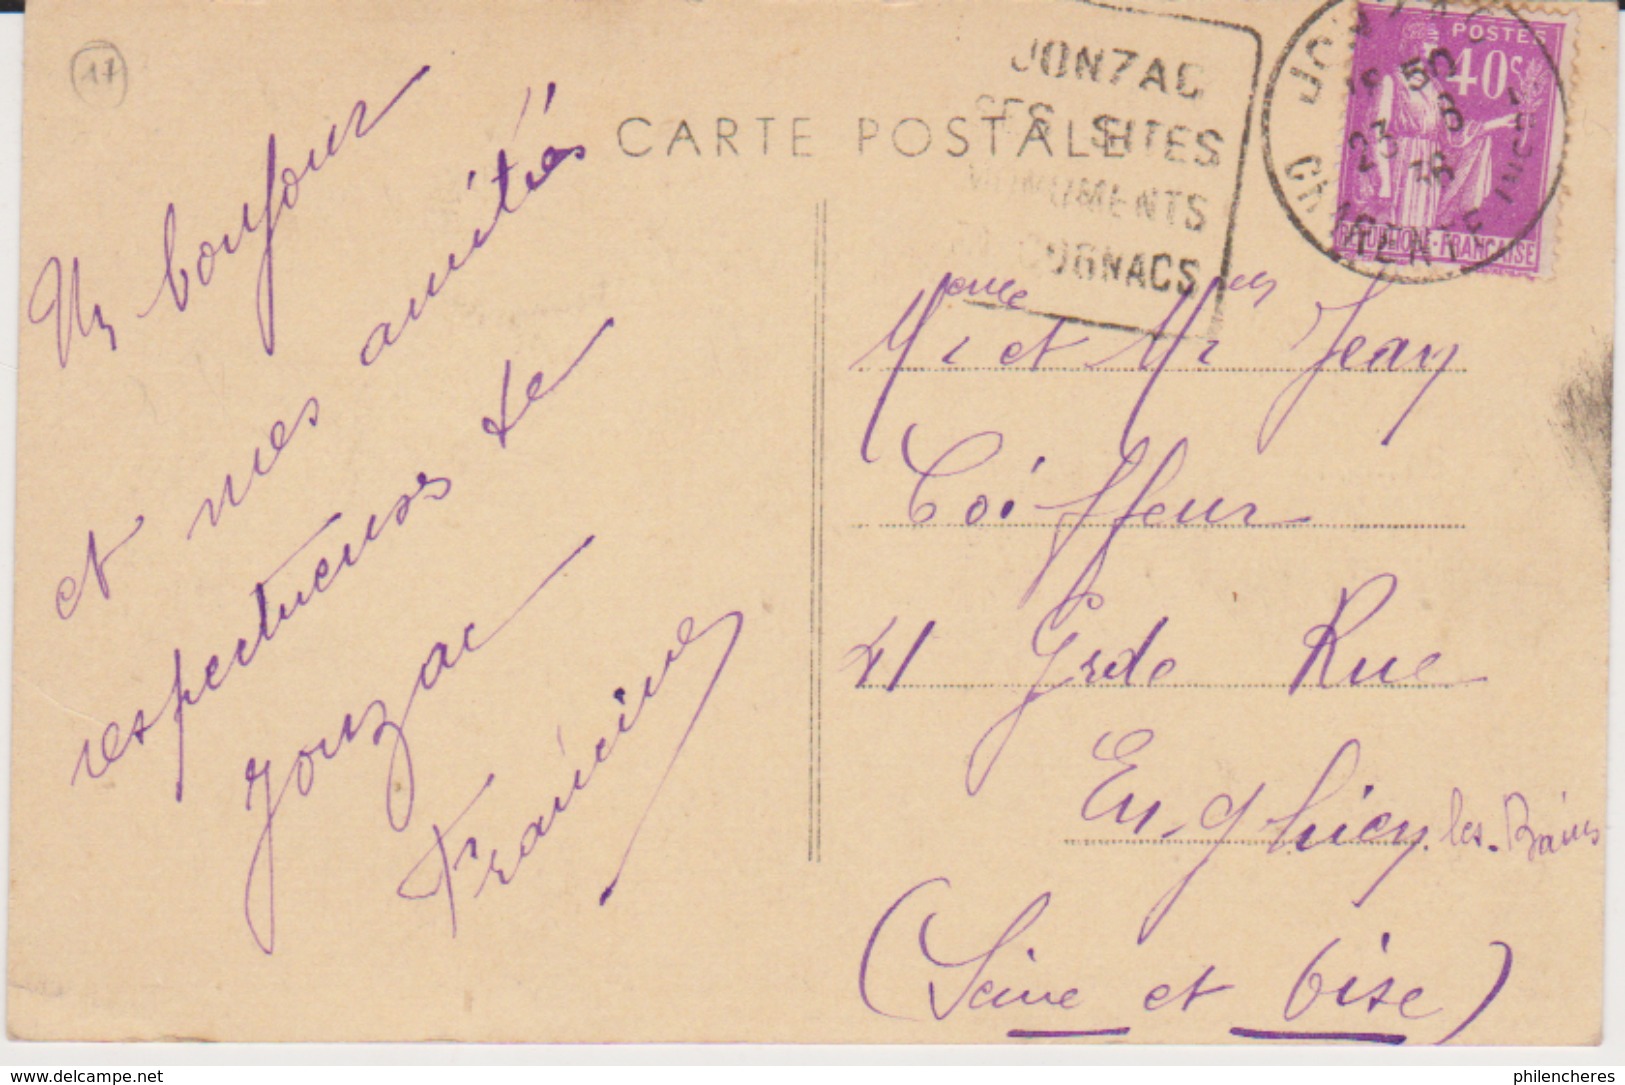 17
CARTE POSTALE
JONZAC
SES SITES
MONUMENTS
COGNACS
JONZAC
CHARENTE INFRE
18 50
23 8
38
POSTES
40c
REPUBLIQUE-FRANÇAISE
Un bonjour
et mes amitiés
respectueuses de
Jonzac
Francine
Mr et Mme Jean
Coiffeur
41 Grde Rue
Enghien les-Bains
(Seine et Oise)
www.delcampe.net
philencheres